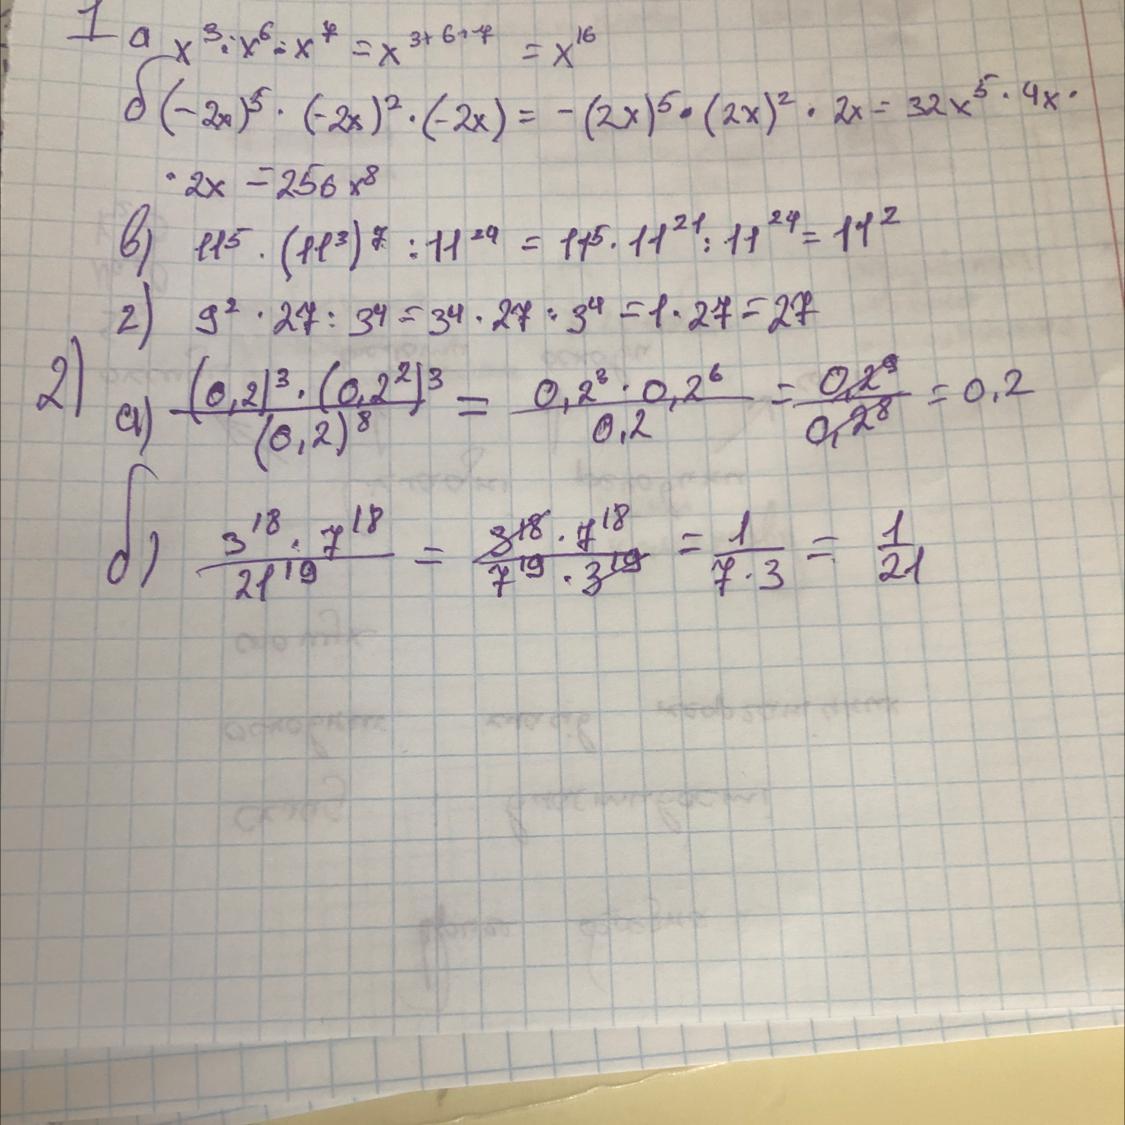 1 а x³·x⁶·x⁷ = x³⁺⁶⁺⁷ = x¹⁶
б (-2x)⁵ · (-2x)² · (-2x) = -(2x)⁵ · (2x)² · 2x = 32x⁵ · 4x ·
· 2x = 256x⁸
в) 11⁵ · (11³)⁷ : 11²⁴ = 11⁵ · 11²¹ : 11²⁴ = 11²
г) 9² · 27 : 3⁴ = 3⁴ · 27 : 3⁴ = 1 · 27 = 27
2) а) (0,2)³ · (0,2²)³ / (0,2)⁸ = 0,2³ · 0,2⁶ / 0,2 = 0,2⁹ / 0,2⁸ = 0,2
б) 3¹⁸ · 7¹⁸ / 21¹⁹ = 3¹⁸ · 7¹⁸ / 7¹⁹ · 3¹⁹ = 1 / 7 · 3 = 1 / 21